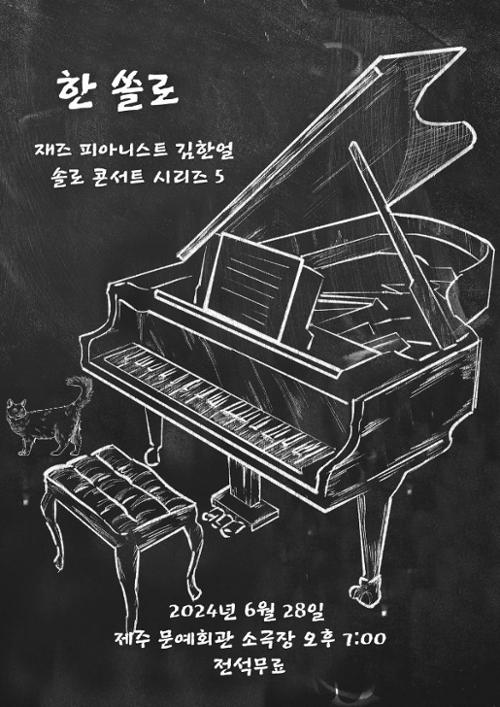 한 쏠로
재즈 피아니스트 김한얼
솔로 콘서트 시리즈 5
2024년 6월 28일
제주 문예회관 소극장 오후 7:00
전석무료